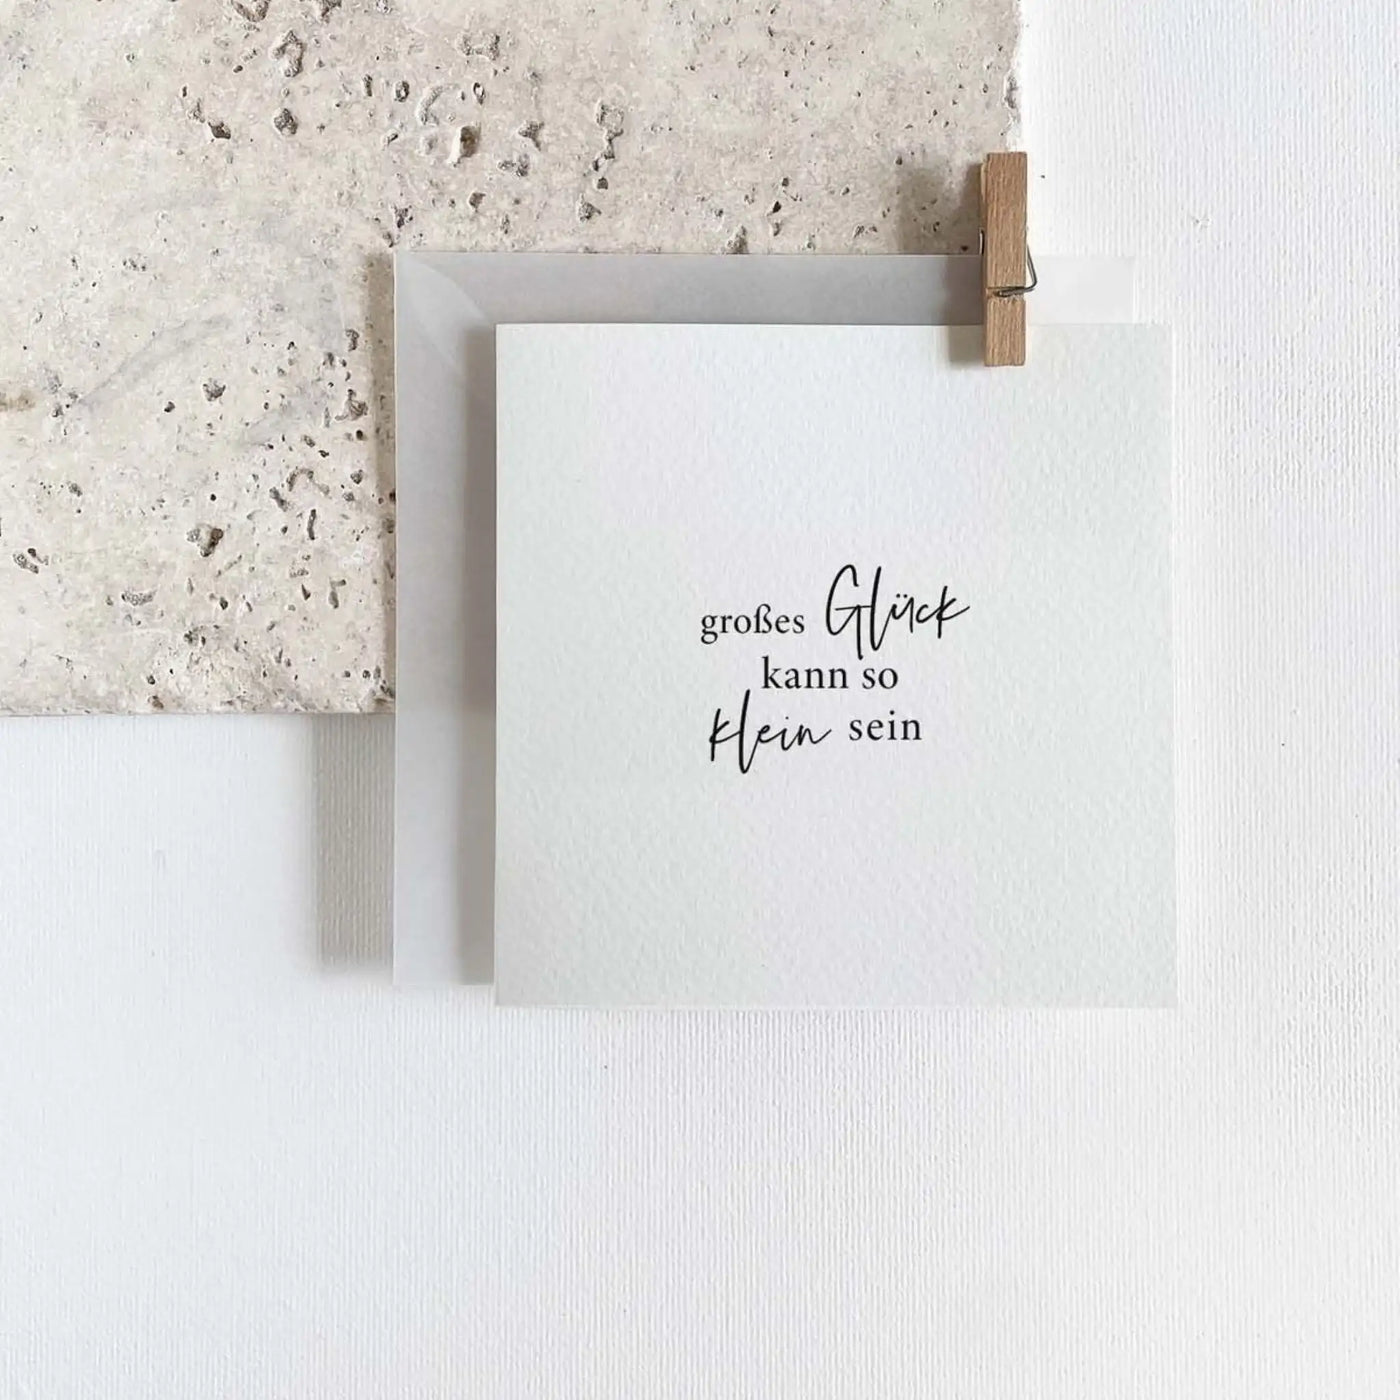 großes Glück
kann so
klein sein